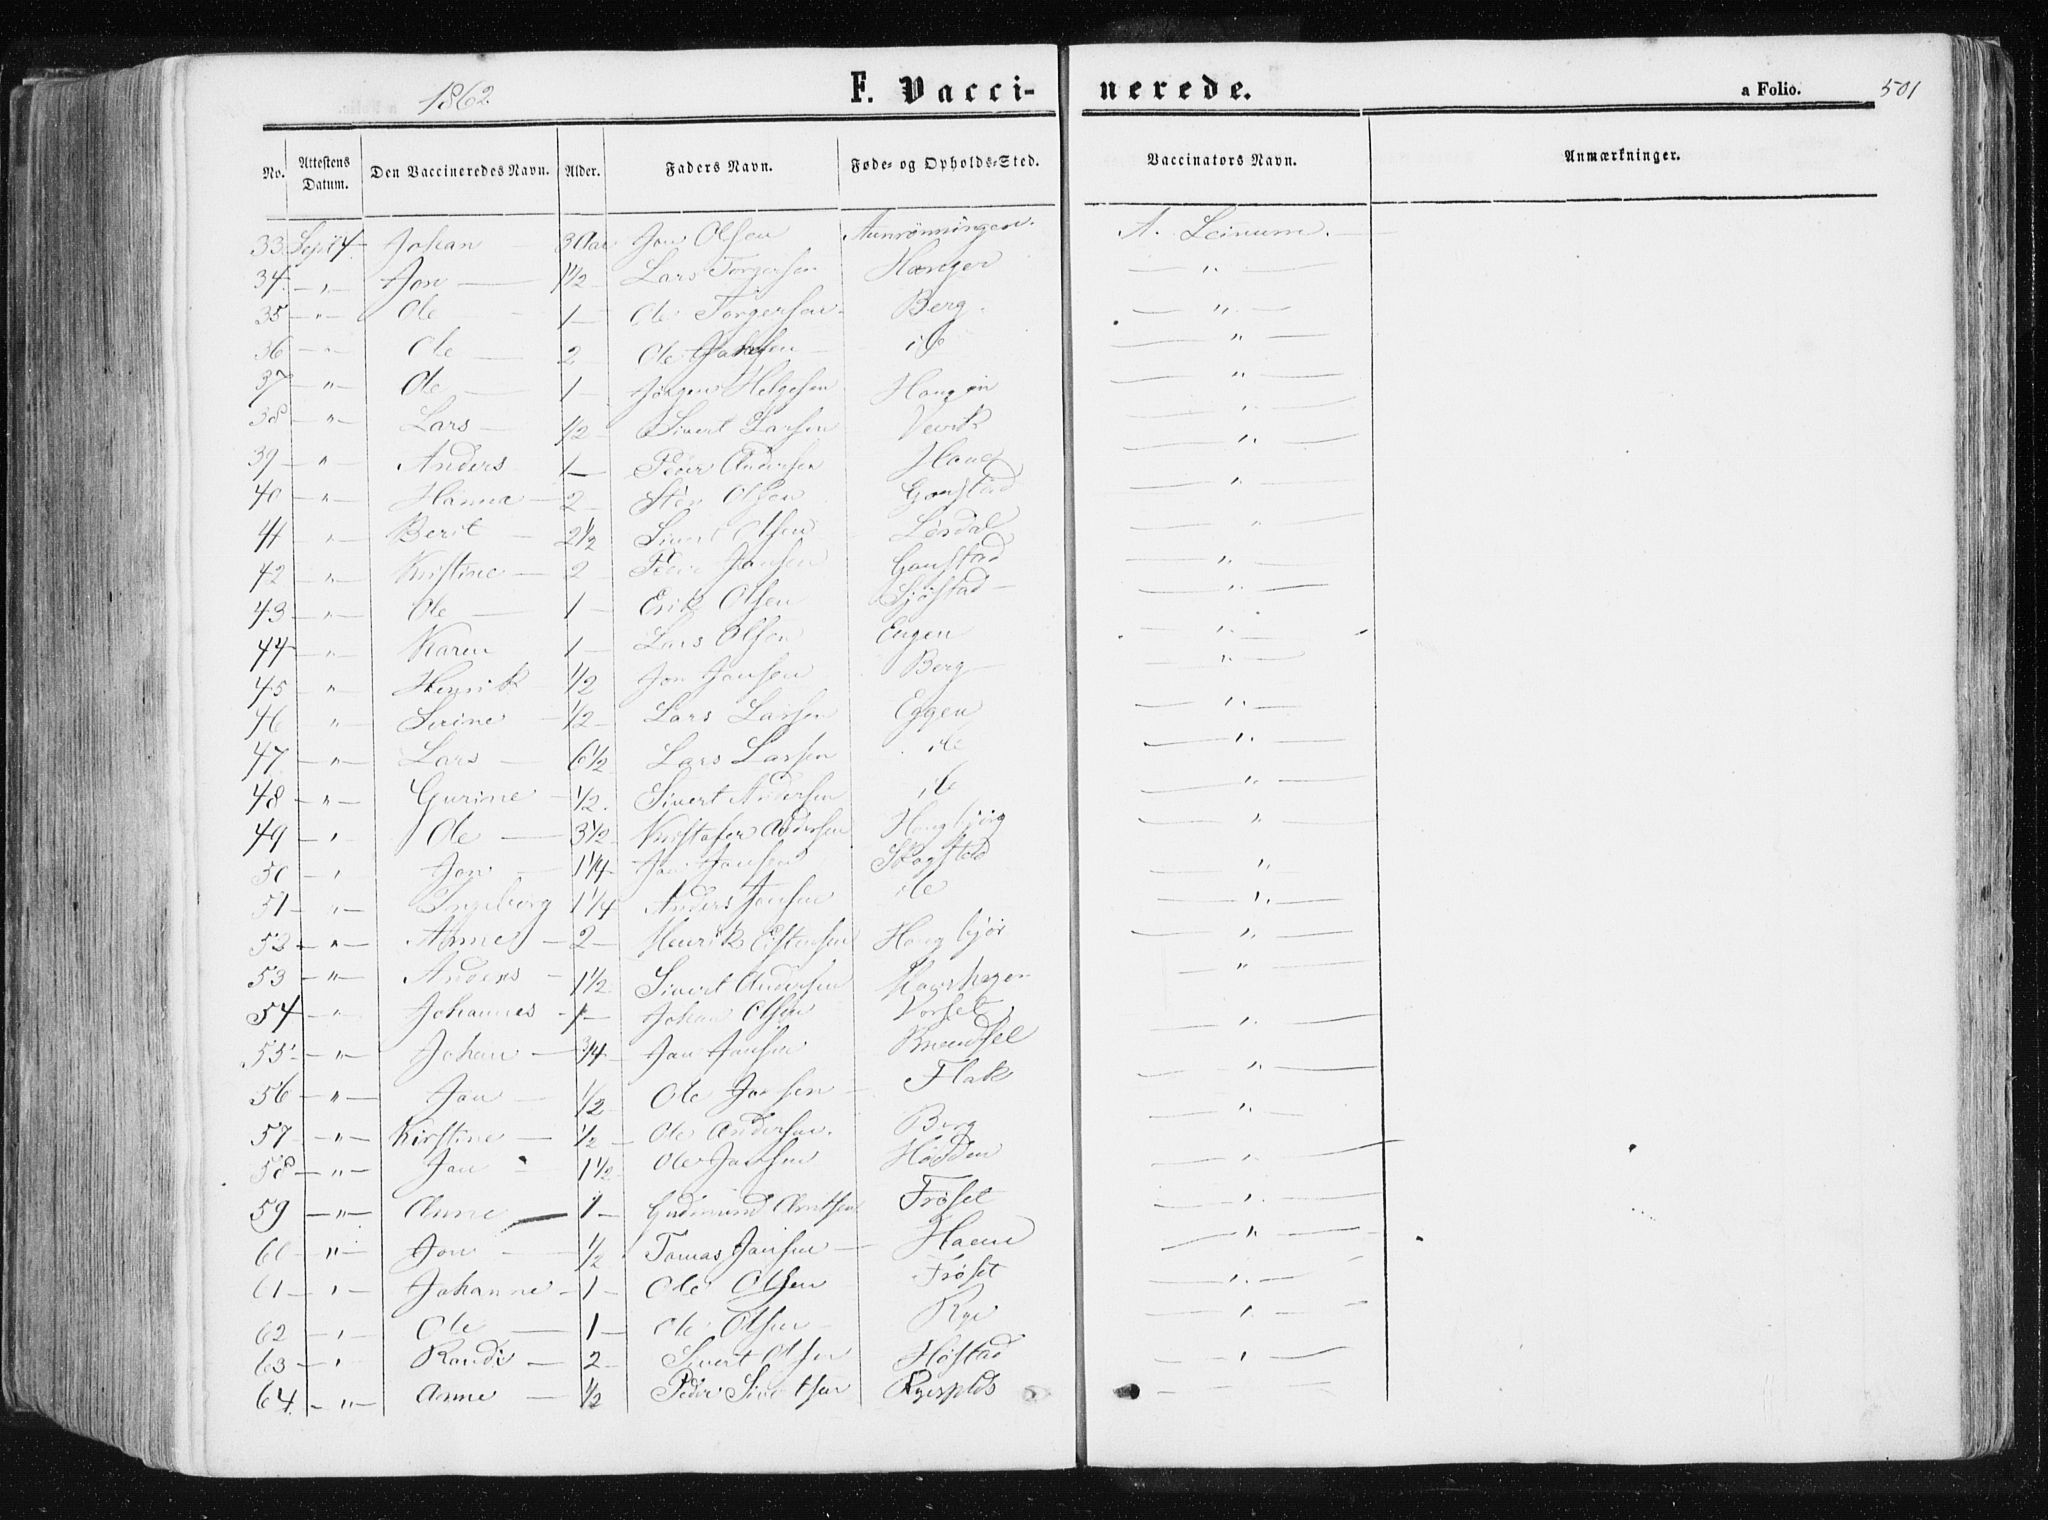 1862 F. Vaccinerede. a Folio. 501
No. Attestens Datum. Den Vaccineredes Navn. Alder. Faders Navn. Føde- og Opholds-Sted. Vaccinators Navn. Anmærkninger.
33 Sept 14 Johan 3 Aar Jon Olsen Aunrønningen A. Leinum.
34 — „ — Jon — 1 1/2 — Lars Torgersen Hanger — „ —
35 — „ — Ole — 1 — Ole Torgersen Berg. — „ —
36 — „ — Ole — 2 — Ole — „ —
37 — „ — Ole — 1 — Jörgen Helgesen — „ —
38 — „ — Lars — 1/2 — Sivert Larsen — „ —
39 — „ — Anders 1 — Peder Andersen — „ —
40 — „ — Hanna — 2 — Olsen Gaustad — „ —
41 — „ — Berit — 2 1/2 Sivert Olsen — „ —
42 — „ — Kristine — 2 — Peder Jonsen Gaustad — „ —
43 — „ — Ole — 1 — Erik Olsen Sjøstad — — „ —
44 — „ — Karen 1 — Lars Olsen — „ —
45 — „ — Henrik 1/2 Jon Jonsen Berg — — „ —
46 — „ — Serine — 1/2 — Lars Larsen Eggen — „ —
47 — „ — Lars — 6 1/2 Lars Larsen — „ —
48 — „ — Gurine — 1/2. Sivert Andersen — „ —
49 — „ Ole — 3 1/2 Kristofer Andersen — „
50 — „ Jon — 1 1/4 Jon Jonsen Skogstad — „
51 — „ — Ingeborg 1 1/4 Anders Jonsen — „ —
52 — „ — Anne — 2 — Henrik — „ —
53 — „ — Anders — 1 1/2 Sivert Andersen — „ —
54 — „ — Johannes — 1 — Johan Olsen Vorset — „ —
55 — „ — Johan — 3/4 — Jon Jonsen — „ —
56 — „ — Jon — 1/2 — Ole Jonsen — Flak — „ —
57 — „ — Kirstine — 1/2 — Ole Andersen. Berg — „ —
58 — „ — Jon — 1 1/2 Ole Jonsen — „ —
59 — „ — Anne — 1 — Gudmund Arntsen Frøset — „ —
60 — „ — Jon — 1/2 Tomas Jonsen — — „ —
61 — „ — Johanne — 1 — Ole Olsen Frøset — „ —
62 — „ — Ole — 1 — Ole Olsen Rye — „ —
63 — „ — Randi — 2 — Sivert Olsen Høstad — „ —
64 — „ — Anne — 1/2 Peder Sivertsen Ryesplds — —